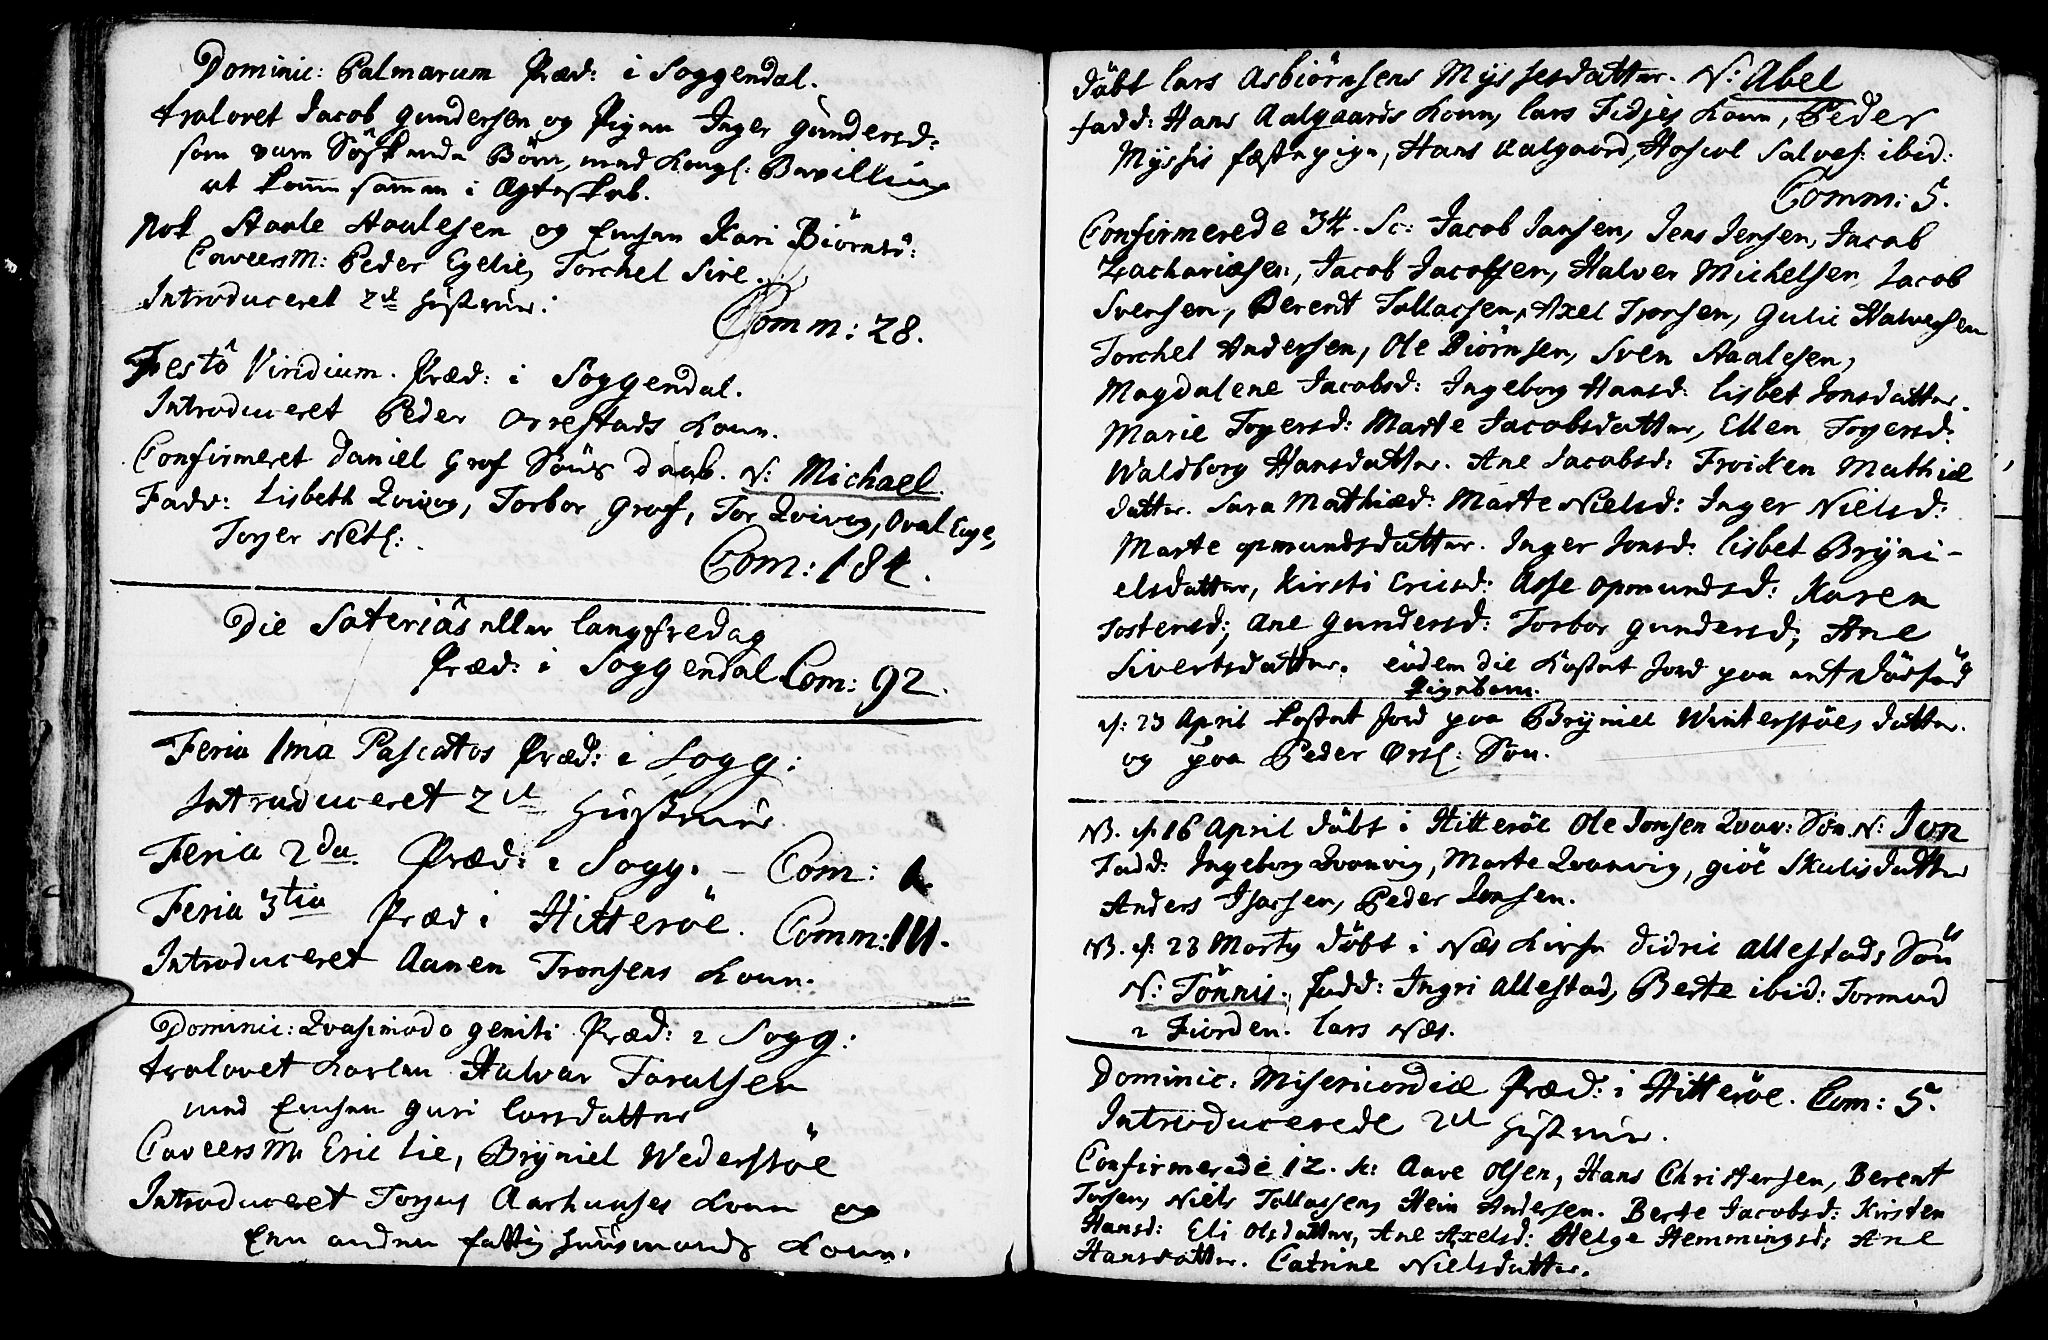 Dominic: Palmarum Præd: i Soggendal.
trolovet Jacob Gundersen og Pigen Inger Gundersd:
som vare Söskende Börn, med Kongl: Bevilling
at komme sammen i Ægteskab.
nok Staale Staalesen og Enken Kari Biörnsd:
Caveers M: Peder Egelie, Torchel Sire.
Introduceret 2de Hustruer.
Comm: 28.
Festo Viridium. Præd: i Soggendal.
Introduceret Peder Orrestads Kone.
Confirmeret Daniel Grof Söns daab. N: Michael.
Fadd: Lisbeth Qvivog, Torbor Grof, Tor Qvivog, Oval Ege,
Torger Netl:
Com: 184.
Die Soteriâs eller langfredag
Præd: i Soggendal Com: 92.
Feria 1ma Pascatos Præd: i Sogg:
Introduceret 2de Hustruer.
Feria 2da. Præd: i Sogg. – Com: 1.
Feria 3tia Præd i Hitteröe. Comm: 111.
Introduceret Aanen Tronsens Kone.
Dominic: Qvasimodo geniti Præd: i Sogg:
trolovet Karlen Halvar Taralsen
med Enken Guri Larsdatter
Caveers M. Eric Lie, Brÿniel Wederstöe
Introduceret Torjus Aarhuuses Kone og
Enn anden fattig Huusmands Kone.
döbt Lars Asbiörnsens Myssesdatter. N: Abel
fadd: Hans Aalgaards Kone, Lars Tidjes Kone, Peder
Myssis fæstepige, Hans Aalgaard, Hascol Salves: ibid:
Comm: 5.
Confirmerede 34. Sc: Jacob Jansen, Jens Jensen, Jacob
Zachariæsen, Jacob Jacobsen, Halver Michelsen, Jacob
Svensen, Berent Tollacsen, Axel Trorsen, Gulic Halversen
Torchel Andersen, Ole Biörnsen, Sven Staalesen,
Magdalene Jacobsd: Ingeborg Hansd: Lisbet Jonsdatter.
Marie Torgersd: Marte Jacobsdatter, Ellen Torgersd:
Waldborg Hansdatter. Ane Jacobsd: Froiken Mathiæ
datter. Sara Mathiæd: Marte Nielsd: Inger Nielsd:
Marte Opmundsdatter. Inger Jonsd: Lisbet Brÿni-
elsdatter, Kirsti Ericsd: Asse Opmundsd: Karen
Tostensd; Ane Gundersd: Torbor Gundersd; Ane
Sivertsdatter. eodem die Kastet Jord paa et dödföd
Pigebarn.
d: 23 April kastet Jord paa Brÿniel Winterstöes datter.
og paa Peder Örsl: Sön.
NB. d. 16 April döbt i Hitteröe Ole Jonsen Qvav: Sön. N: Jon
Fadd: Ingeborg Qvanvig, Marte Qvanvig, Giöe Skulisdatter
Anders Isacsen, Peder Jonsen.
NB. d: 23 Marty döbt i Næs Kirke Didric Allestads Sön
N: Tönnis. Fadd: Ingri Allestad, Berte ibid: Tormod
i Fiorden. Lars Næs.
Dominic: Misericordiæ Præd: i Hitteröe. Com: 5.
Introducerede 2de Hustruer.
Confirmerede 12. sc: Aave Olsen, Hans Christensen, Berent
Torsen, Niels Tollassen, Hein Andersen. Berte Jacobsd: Kirsten
Hansd: Eli Olsdatter, Ane Axelsd: Helge Hemmingsd; Ane
Hansdatter. Catrine Nielsdatter.